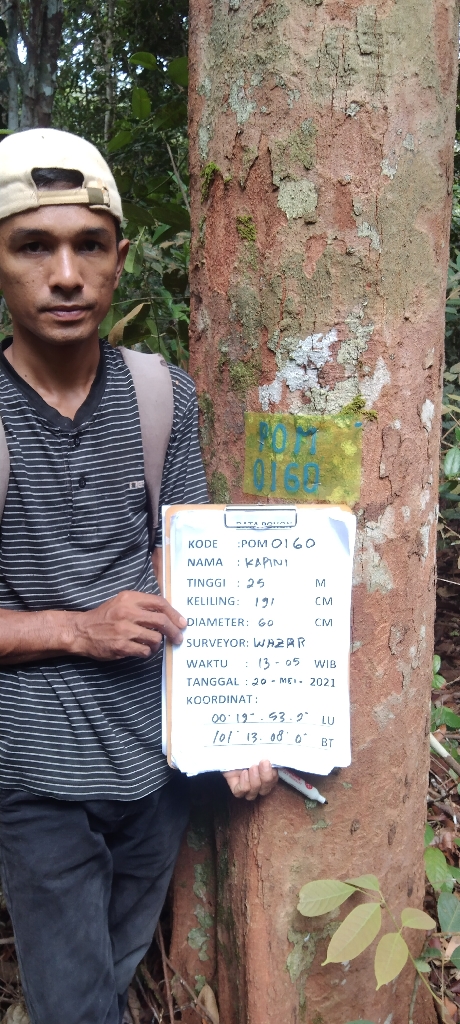 POM
0160
DATA POHON
KODE :POM 0160
NAMA : KAPINI
TINGGI : 25 M
KELILING: 191 CM
DIAMETER: 60 CM
SURVEYOR: WAZAR
WAKTU : 13-05 WIB
TANGGAL : 20-MEI-2021
KOORDINAT:
LU
BT